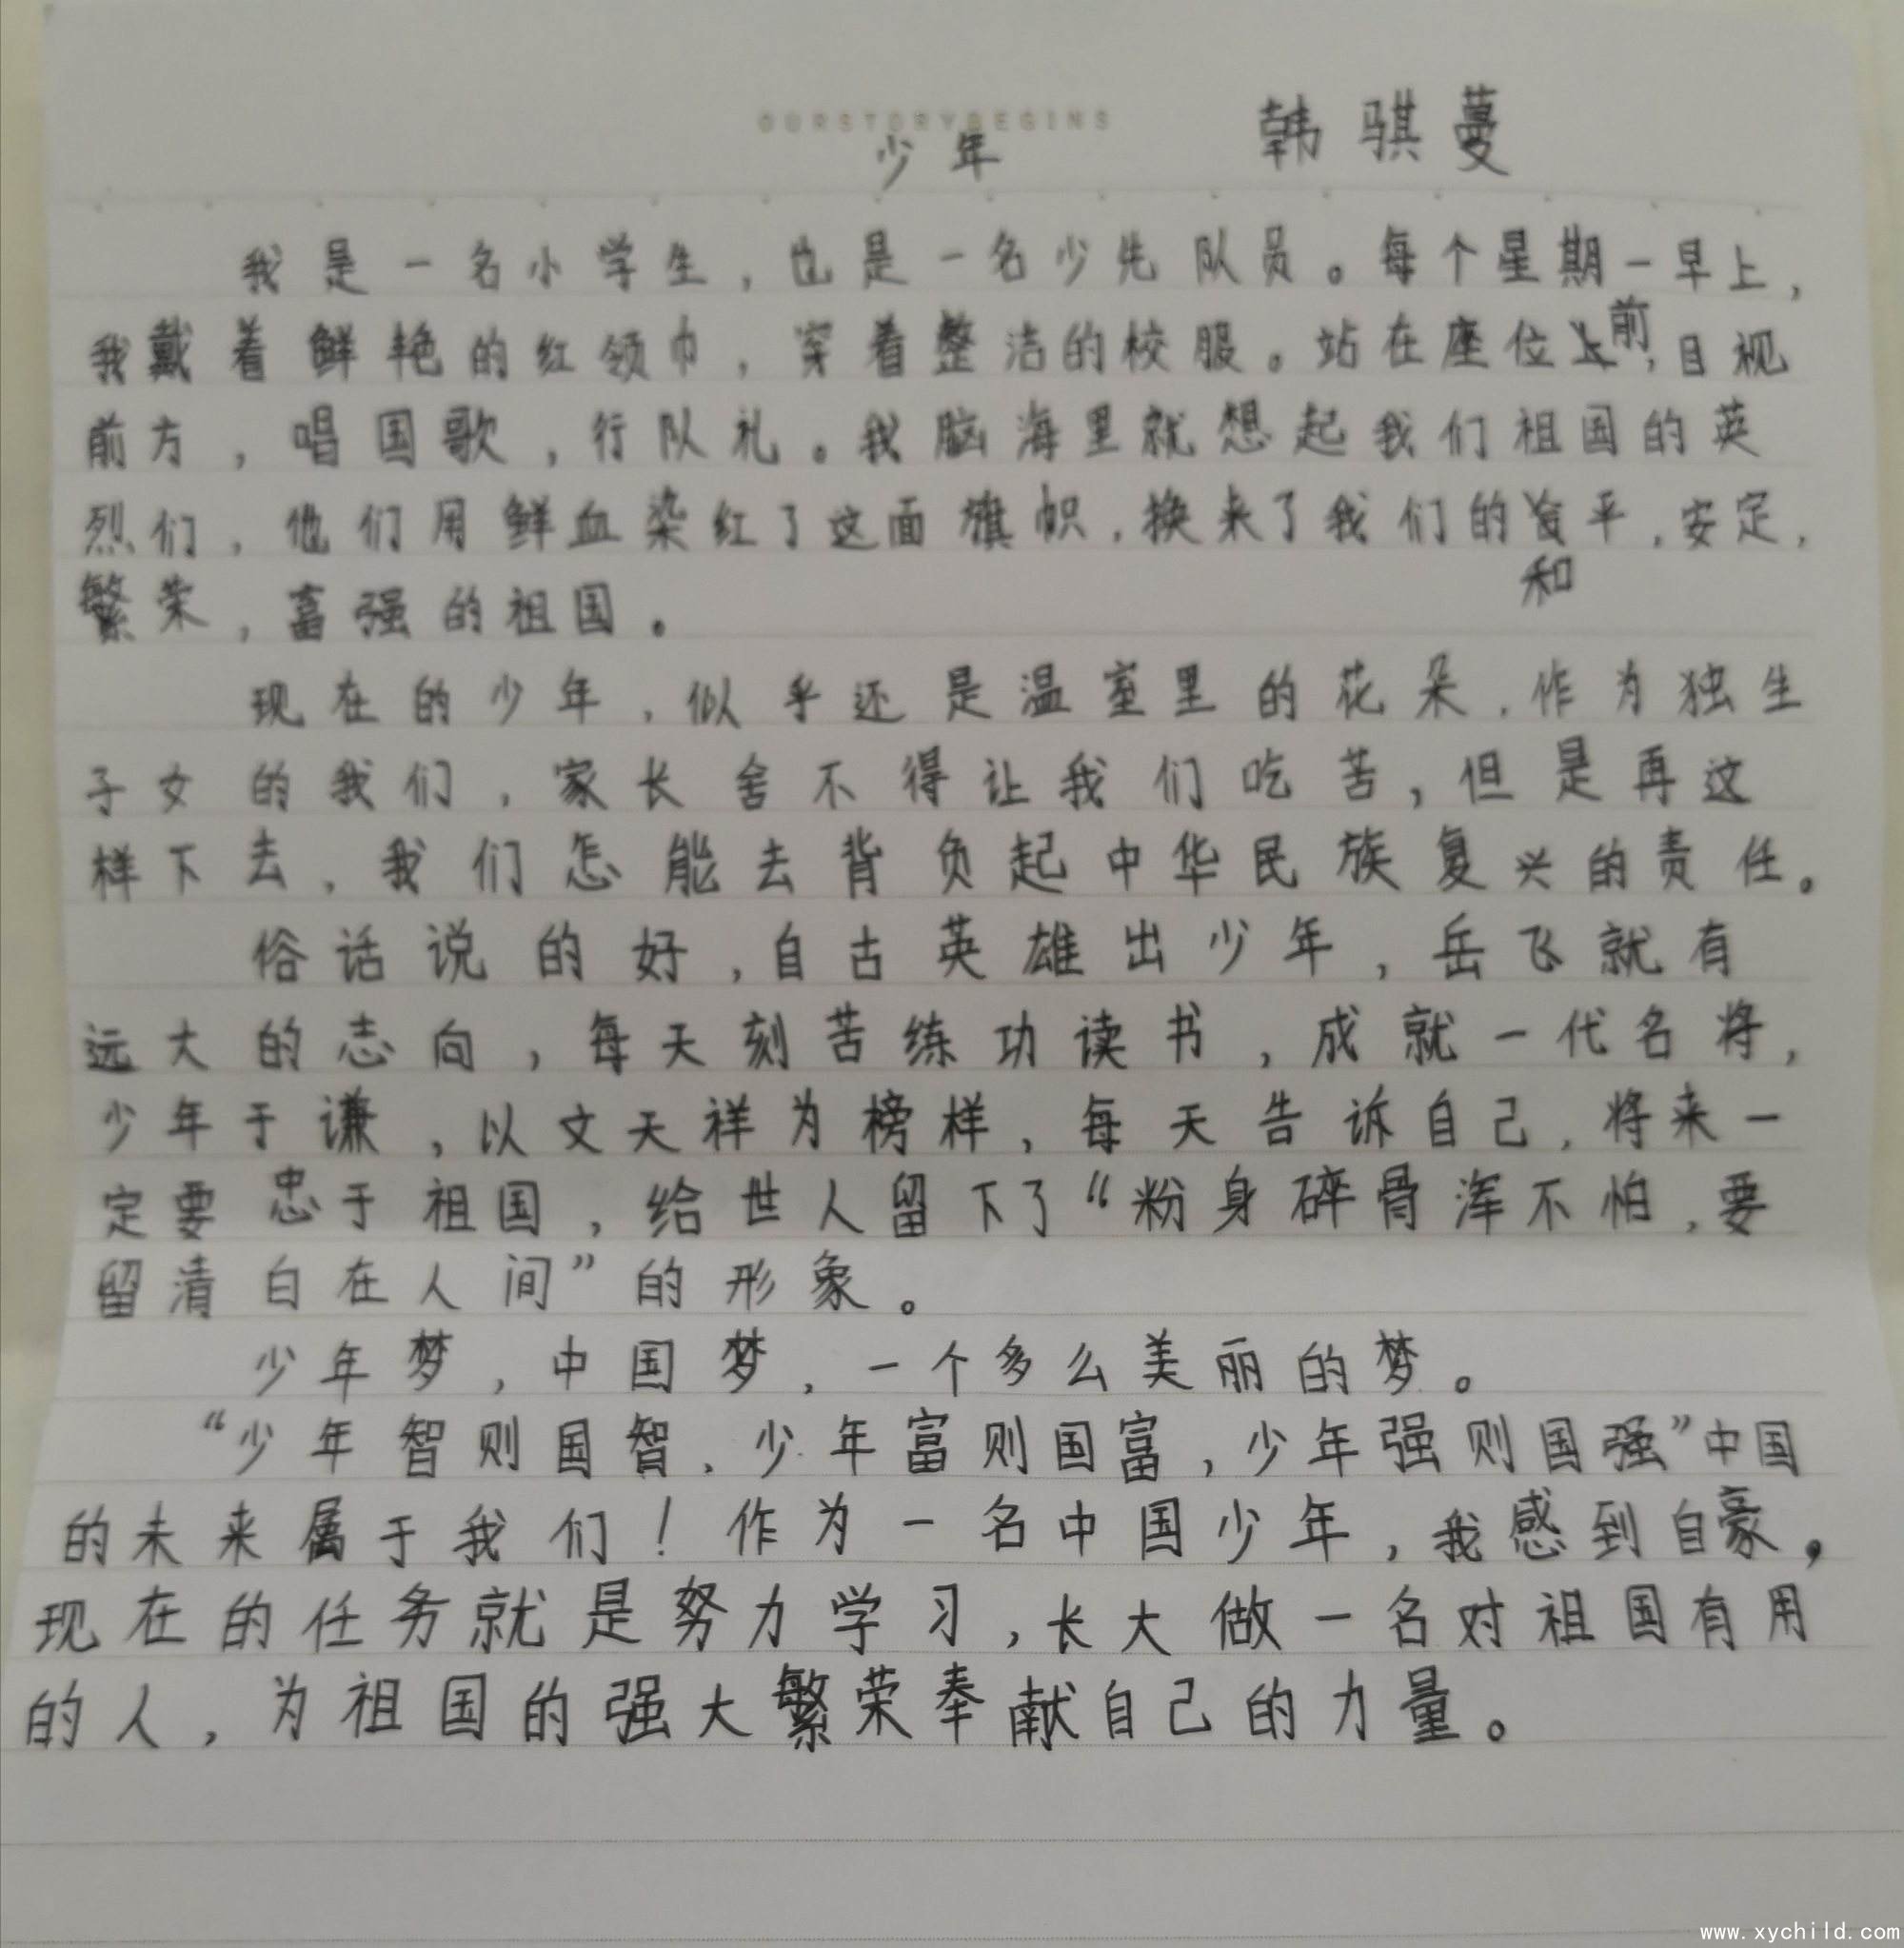 OURSTORYBEGINS
少年 韩骐蔓
我是一名小学生，也是一名少先队员。每个星期一早上，
我戴着鲜艳的红领巾，穿着整洁的校服。站在座位前，目视
前方，唱国歌，行队礼。我脑海里就想起我们祖国的英
烈们，他们用鲜血染红了这面旗帜，换来了我们的和平，安定，
繁荣，富强的祖国。
现在的少年，似乎还是温室里的花朵，作为独生
子女的我们，家长舍不得让我们吃苦，但是再这
样下去，我们怎能去背负起中华民族复兴的责任。
俗话说的好，自古英雄出少年，岳飞就有
远大的志向，每天刻苦练功读书，成就一代名将，
少年于谦，以文天祥为榜样，每天告诉自己，将来一
定要忠于祖国，给世人留下了“粉身碎骨浑不怕，要
留清白在人间”的形象。
少年梦，中国梦，一个多么美丽的梦。
“少年智则国智，少年富则国富，少年强则国强”中国
的未来属于我们！作为一名中国少年，我感到自豪，
现在的任务就是努力学习，长大做一名对祖国有用
的人，为祖国的强大繁荣奉献自己的力量。
www.xychild.com